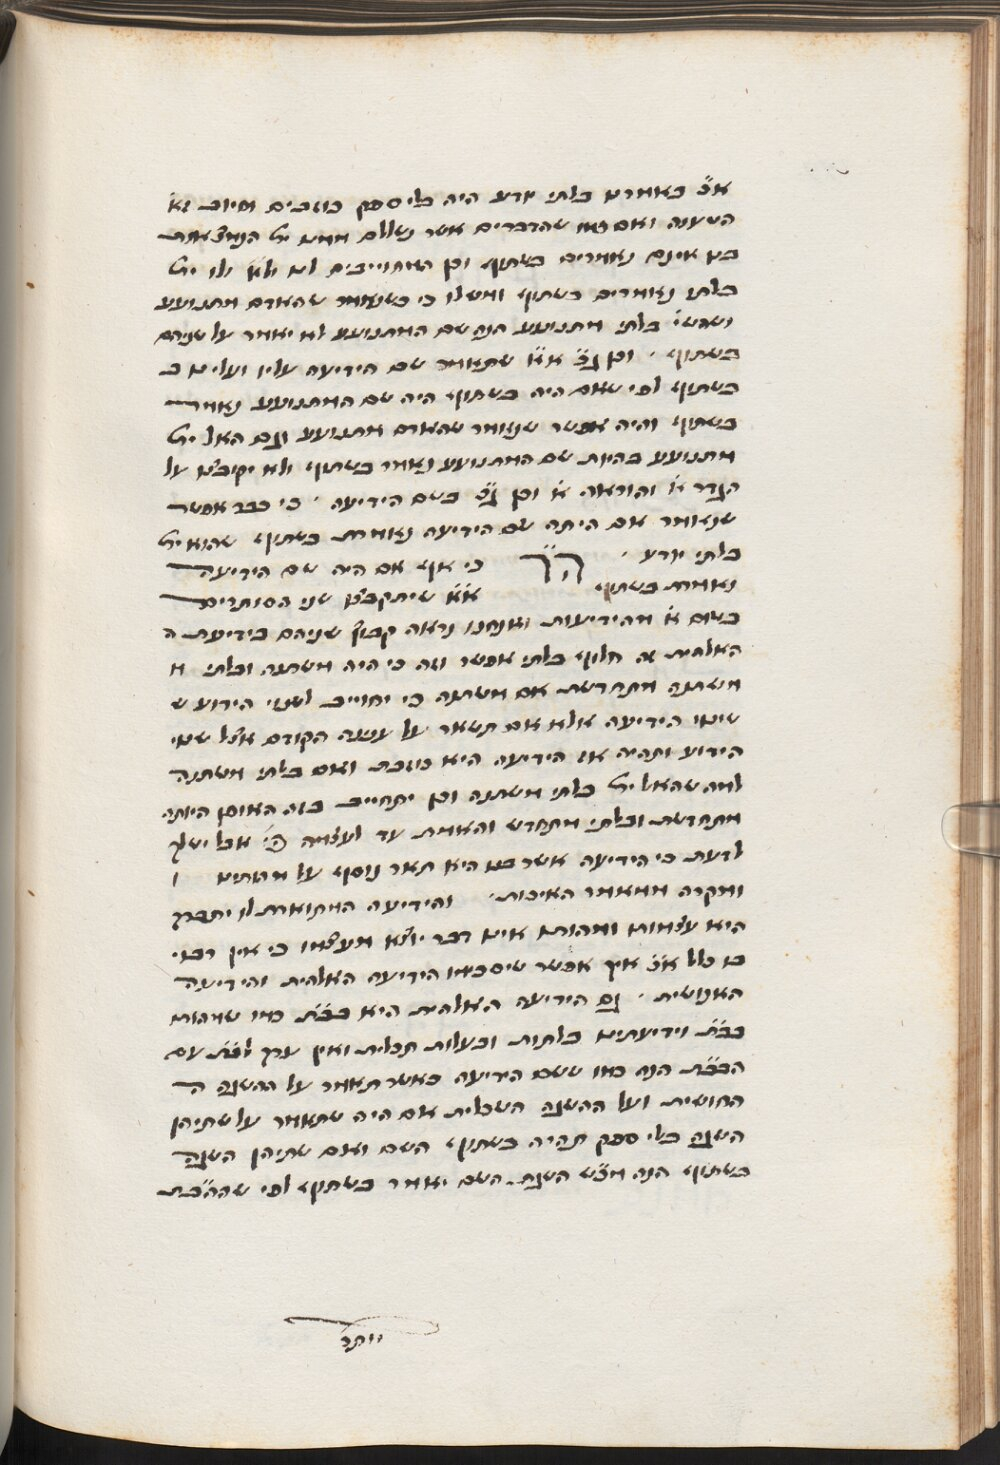 א״כ באומרם בלתי יודע היה בלי ספק כוזבים וחיוב זא׳
השיענה ואם כמו שהדברים אשר נשללם ממנו ית׳ הנמצאות
בם אינם נאמרים בשתוף וכן המחוייבים לנו ולא ולו ית׳
בלתי נאמרים בשתוף ומשלו כי כשנאמר שהאדם מתנועע
ושהשי׳ בלתי מתנועע הנה שם המתנועע לא יאמר על שניהם
בשתוף · וכן ג״כ א״א שתאמר שם הידיעה עליו ועלינו ב
בשתוף לפי שאם היה בשתוף היה שם המתנועע נאמר
בשתוף והיה אפשר שנאמר שהאדם מתנועע וגם האל ית׳
מתנועע בהיות שם המתנועע נאמר בשתוף ולא יקובץ על
הגדר א׳ והוראה א׳ וכן ג״כ בשם הידיעה · כי כבר אפשר
שנאמר אם היתה שם הידיעה נאמרת בשתוף שהוא ית׳
בלתי יודע · הך כי אף אם היה שם הידיעה
נאמרת בשתוף א״א שיתקבצו שני הסותרים
בשום א׳ מהידיעות ואנחנו נראה קבוץ שניהם בידיעת ה
האלהית זה חלוף בלתי אפשר וזה כי היה משתנה ובלתי מ
משתנה מתחדשת אם משתנה כי יחוייב לשנוי הידוע ש
שינוי הידיעה אלא אם תשאר על ענינה הקודם אצל שנוי
הידוע ותהיה אז הידיעה היא כוזבת ואם בלתי משתנה
למה שהאל ית׳ בלתי משתנה וכן יתחייב בזה האופן היותה
מתחדשת ובלתי מתחדש והאמת עד לעצמה כי׳ אבל ישלך
לדעת כי הידיעה אשר בנו היא תאר נוסף על מהותינו ו
ומקרה ממאמר האיכות · והידיעה המתוארת לו יתברך
היא עצמותו ומהותו אינו דבר יוצא מעצמו כי אין רבוי
בו כלל א״כ איך אפשר שיסכימו הידיעה האלהית והידיעה
האנושית · גם הידיעה האלהית היא בב״ת כמו שמהותו
בב״ת וידיעתינו כלתות ובעלות תכלית ואין ערך לב״ת עם
הבב״ת הנה כמו ששם הידיעה כאשר תאמר על ההשגה ה
החושית ועל ההשגה השכלית אם היה שתאמר על שתיהן
השגה בלי ספק תהיה בשתוף השם ואם שתיהן השגה
בשתוף הנה מצש השגה השם יאמר בשתוף לפי שההב״ת
יותר